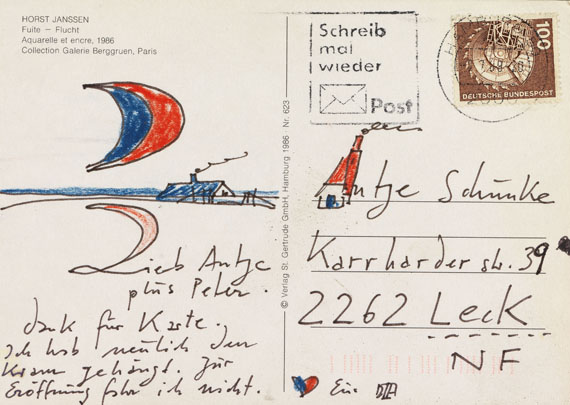 HORST JANSSEN
Fuite – Flucht
Aquarelle et encre, 1986
Collection Galerie Berggruen, Paris
Lieb Antje
plus Peter.
dank für Karte.
Ich hab neulich den
Kram gehängt. Zur
Eröffnung fahr ich nicht.
© Verlag St. Gertrude GmbH, Hamburg 1986 Nr. 623
Schreib
mal
wieder
Post
100
DEUTSCHE BUNDESPOST
Antje Schünke
Karrharder str. 39
2262 Leck
NF
Ein